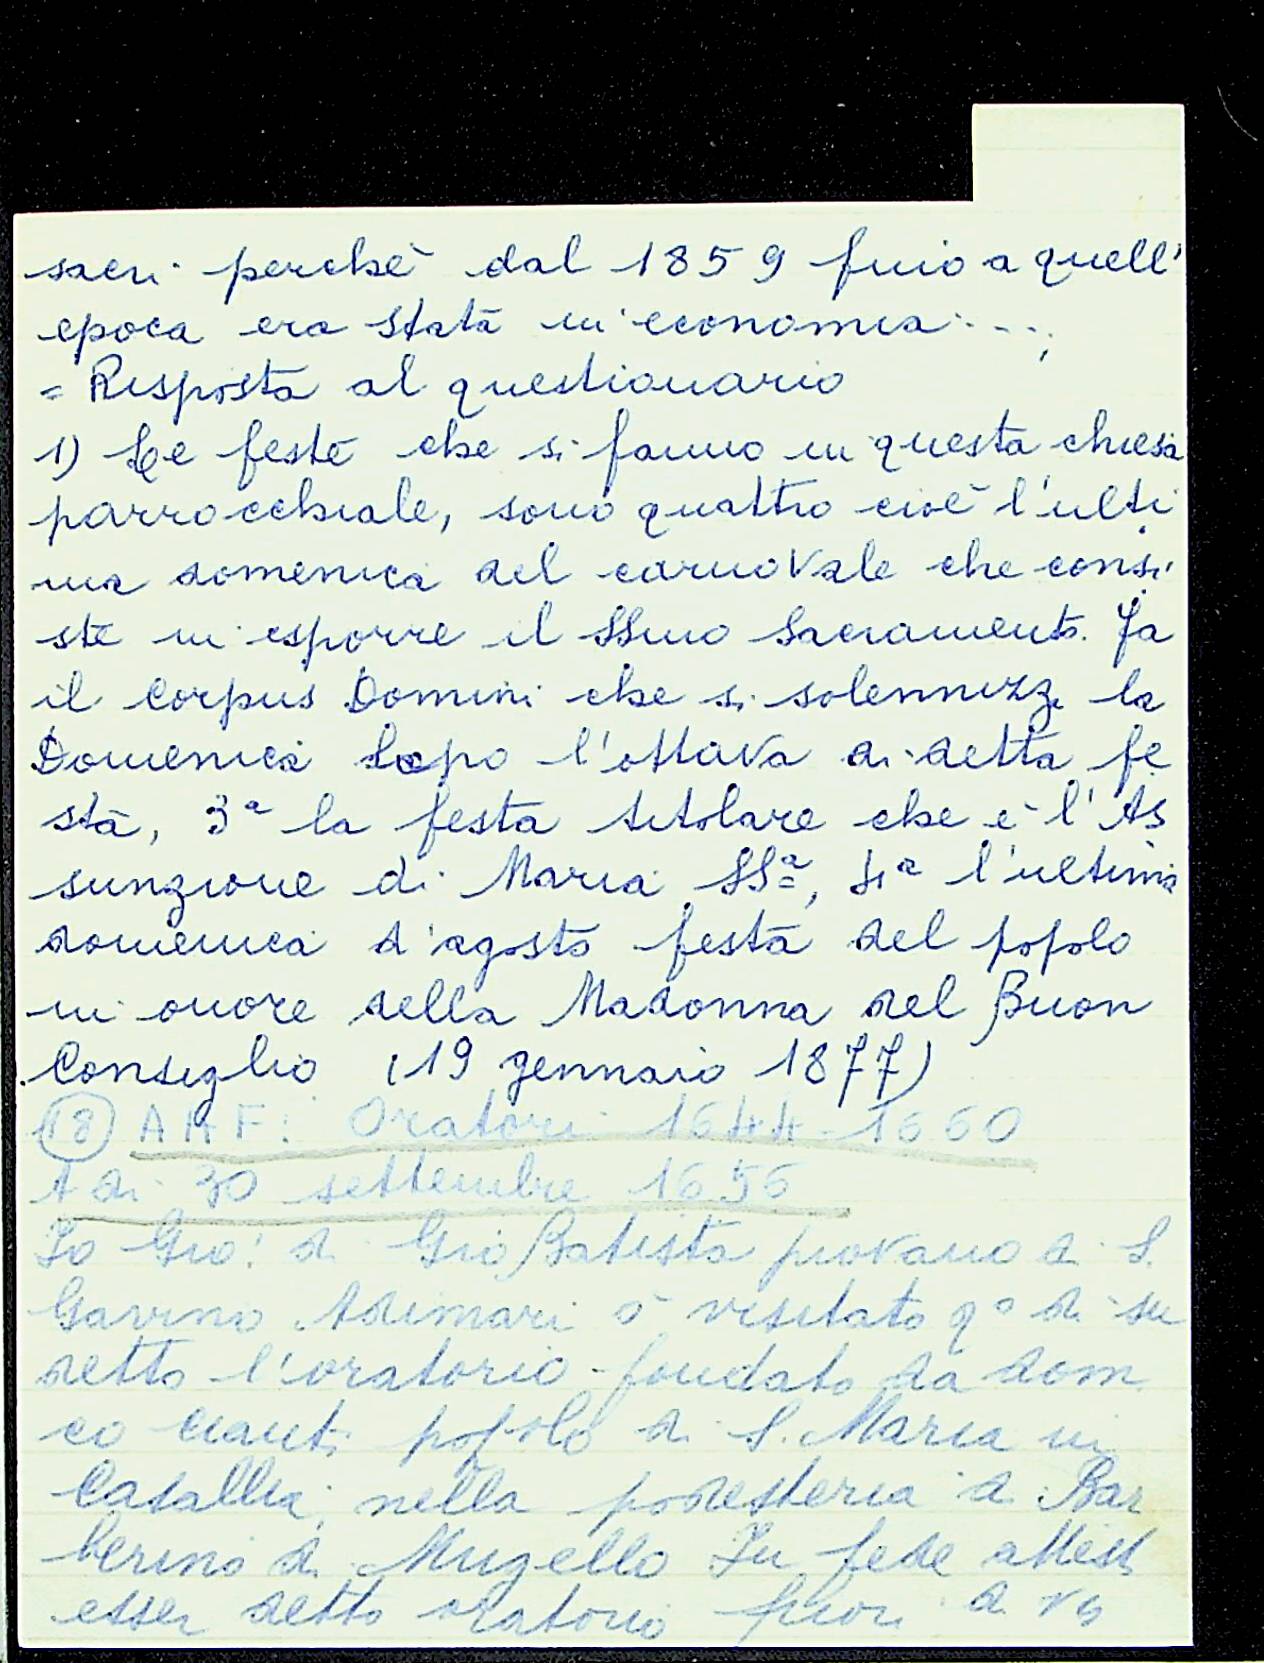 sacri perchè dal 1859 fino a quell'
epoca era stata in economia....;
= Risposta al questionario
1) Le feste che si fanno in questa chiesa
parrocchiale, sono quattro cioè l'ulti
ma domenica del carnovale che consi
ste in esporre il SSmo Sacramento.
il Corpus Domini che si solennizza la
Domenica dopo l'ottava di detta fe
sta, 3ª la festa titolare che è l'As
sunzione di Maria SSª, 4ª l'ultima
domenica d'agosto festa del popolo
in onore della Madonna del Buon
Consiglio (19 gennaio 1877)
(18) AAF: Oratori 1644-1660
A di 30 settembre 1656
Io Gio: di Gio Batista piovano di S.
Gavino Adimari ò visitato qº di su
detto l'oratorio fondato da dom
co cianti popolo di S. Maria in
Casallia, nella podesteria di Bar
berino di Mugello In fede attest
esser detto oratorio fuori di